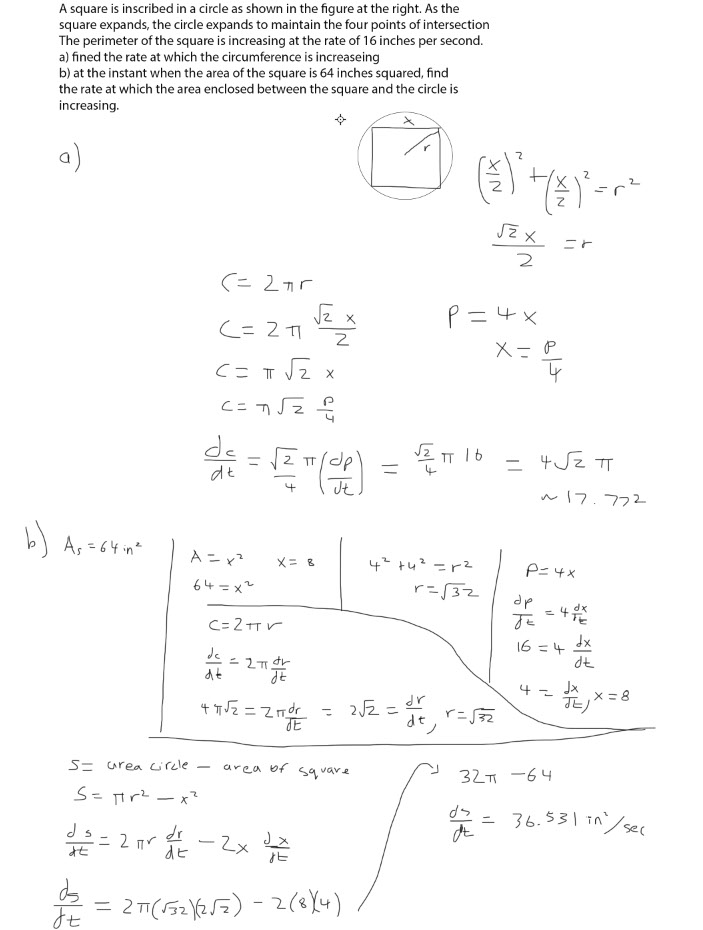 A square is inscribed in a circle as shown in the figure at the right. As the
square expands, the circle expands to maintain the four points of intersection
The perimeter of the square is increasing at the rate of 16 inches per second.
a) fined the rate at which the circumference is increaseing
b) at the instant when the area of the square is 64 inches squared, find
the rate at which the area enclosed between the square and the circle is
increasing.
a)
x
r
(x/2)² + (x/2)² = r²
√2 x / 2 = r
C = 2πr
C = 2π √2 x / 2
C = π √2 x
C = π √2 P/4
P = 4x
x = P/4
dc/dt = √2/4 π (dp/dt) = √2/4 π 16 = 4√2 π
~ 17.772
b) As = 64 in²
A = x² x = 8
64 = x²
4² + 4² = r²
r = √32
P = 4x
dp/dt = 4 dx/dt
16 = 4 dx/dt
4 = dx/dt, x = 8
C = 2πr
dc/dt = 2π dr/dt
4π√2 = 2π dr/dt = 2√2 = dr/dt, r = √32
S = area circle – area of square
S = πr² – x²
ds/dt = 2πr dr/dt – 2x dx/dt
ds/dt = 2π(√32)(2√2) – 2(8)(4)
32π – 64
ds/dt = 36.531 in²/sec